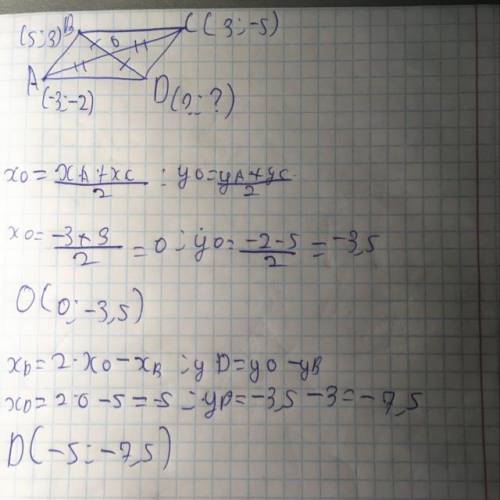 (5;3) B C (3;-5)
O
A D (?;?)
(-3;-2)
xo = xA+xC/2 ; yo = yA+yC/2
xo = -3+3/2 = 0 ; yo = -2-5/2 = -3,5
O(0;-3,5)
xD = 2·xO - xB ; yD = yO - yB
xD = 2·0 - 5 = -5 ; yD = -3,5 - 3 = -7,5
D(-5;-7,5)